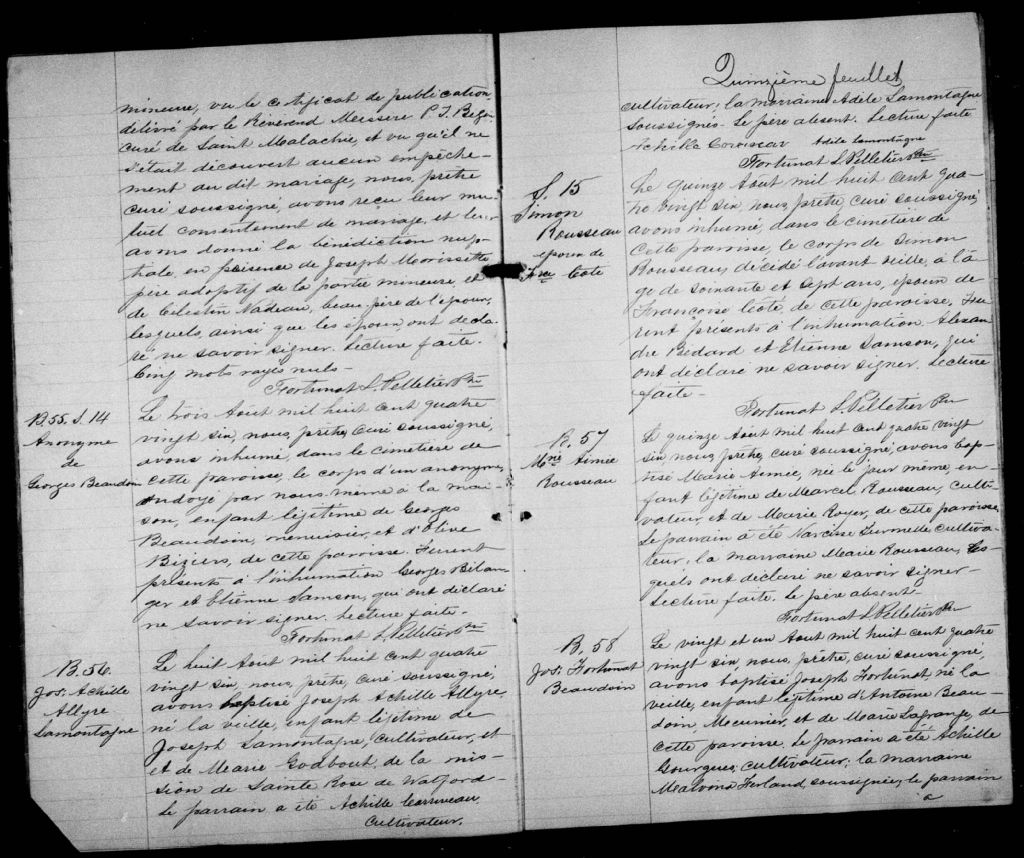 mineure, vu le certificat de publication
délivré par le Révérend Messire P. J.
curé de Saint Malachie, et vu qu'il ne
s'était découvert aucun empêche-
ment au dit mariage, nous, prêtre
curé soussigné, avons reçu leur mu-
tuel consentement de mariage, et leur
avons donné la bénédiction nup-
tiale, en présence de Joseph Morissette
père adoptif de la partie mineure, et
de Célestin Nadeau, beau-père de l'époux,
lesquels, ainsi que les époux, ont décla-
ré ne savoir signer. Lecture faite.
Cinq mots rayés nuls -
Fortunat L. Pelletier Ptre
B. 55. S. 14
Anonyme
de
Georges Beaudoin
Le trois Août mil huit cent quatre
vingt six, nous, prêtre, curé soussigné,
avons inhumé, dans le cimetière de
cette paroisse, le corps d'un anonyme,
ondoyé par nous-même à la mai-
son, enfant légitime de Georges
Beaudoin, menuisier, et d'Olive
Biziers, de cette paroisse. Furent
présents à l'inhumation Georges Bélan-
ger et Etienne Samson, qui ont déclaré
ne savoir signer. Lecture faite. -
Fortunat L. Pelletier Ptre
B. 56
Jos. Achille
Allyre
Lamontagne
Le huit Août mil huit cent quatre
vingt six, nous, prêtre, curé soussigné,
avons baptisé Joseph Achille Allyre,
né la veille, enfant légitime de
Joseph Lamontagne, cultivateur, et
et de Marie Godbout, de la mis-
sion de Sainte Rose de Watford -
Le parrain a été Achille
Cultivateur.
Quinzième feuillet
cultivateur, la marraine Adèle Lamontagne
soussignés. Le père absent. Lecture faite
Achille Adèle Lamontagne
Fortunat L. Pelletier Ptre
S. 15
Simon
Rousseau
époux de
Fse Coté
Le quinze Août mil huit cent qua-
tre vingt six, nous, prêtre, curé soussigné,
avons inhumé, dans le cimetière de
cette paroisse, le corps de Simon
Rousseau, décédé l'avant veille, à l'â-
ge de soixante et sept ans, époux de
Françoise Coté, de cette paroisse. Fu-
rent présents à l'inhumation Alexan-
dre Bédard et Etienne Samson, qui
ont déclaré ne savoir signer. Lecture
faite -
Fortunat L. Pelletier Ptre
B. 57
Mrie Aimée
Rousseau
Le quinze Août mil huit cent quatre vingt
six, nous, prêtre, curé soussigné, avons bap-
tisé Marie Aimée, née le jour même, en-
fant légitime de Marcel Rousseau, culti-
vateur, et de Marie Royer, de cette paroisse
Le parrain a été Narcisse Turmelle cultiva-
teur, la marraine Marie Rousseau, les-
quels ont déclaré ne savoir signer -
Lecture faite. Le père absent -
Fortunat L. Pelletier Ptre
B. 58
Jos. Fortunat
Beaudoin
Le vingt et un Août mil huit cent quatre
vingt six, nous, prêtre, curé soussigné,
avons baptisé Joseph Fortunat, né la
veille, enfant légitime d'Antoine Beau-
doin, Meunier, et de Marie Lagrange, de
cette paroisse. Le parrain a été Achille
Gourgues, cultivateur; la marraine
Malvina Ferland, soussignée, le parrain
a